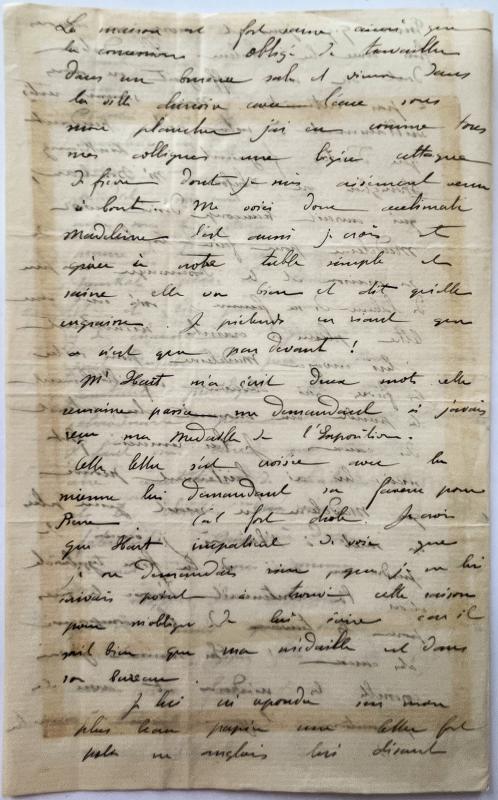 La maison est fort saine ainsi que
la concession obligé de travailler
dans un bureau sale et vivre dans
la ville chinoise avec l'eau sous
mon plancher j'ai eu comme tous
mes collègues une légère attaque
de fièvre dont je suis aisément venu
à bout. Me voici donc acclimaté
Madeleine l'est aussi je crois et
grâce à notre table simple et
saine elle va bien et dit qu'elle
engraisse. Je prétends en riant que
ce n'est que par devant !
Mr Hart m'a écrit deux mots cette
semaine passée me demandant si j'avais
reçu ma médaille de l'Exposition.
Cette lettre s'est croisée avec la
mienne lui demandant sa faveur pour
Pierre C'est fort drôle. Je crois
que Hart impatient de voir que
je ne demandais rien, que je ne lui
écrivais point a trouvé cette raison
pour m'obliger de lui écrire car il
sait bien que ma médaille est dans
son bureau.
Je lui ai répondu sur mon
plus beau papier une lettre fort
polie en anglais lui disant